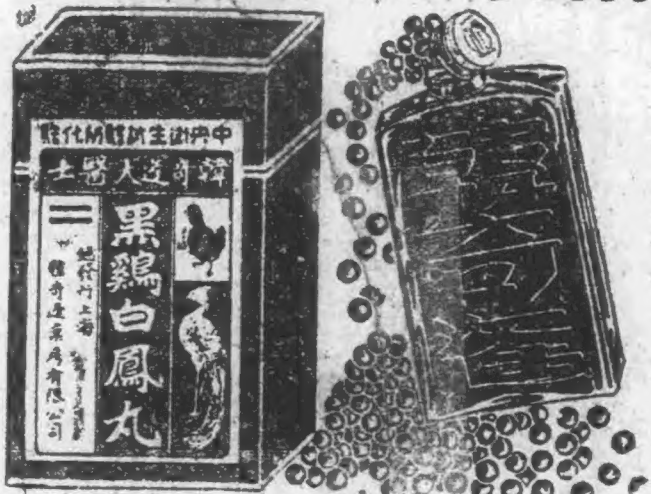 中央衛生試驗所化驗
韓奇逢大醫士
黑鷄白鳳丸
總發行上海
韓奇逢藥房有限公司